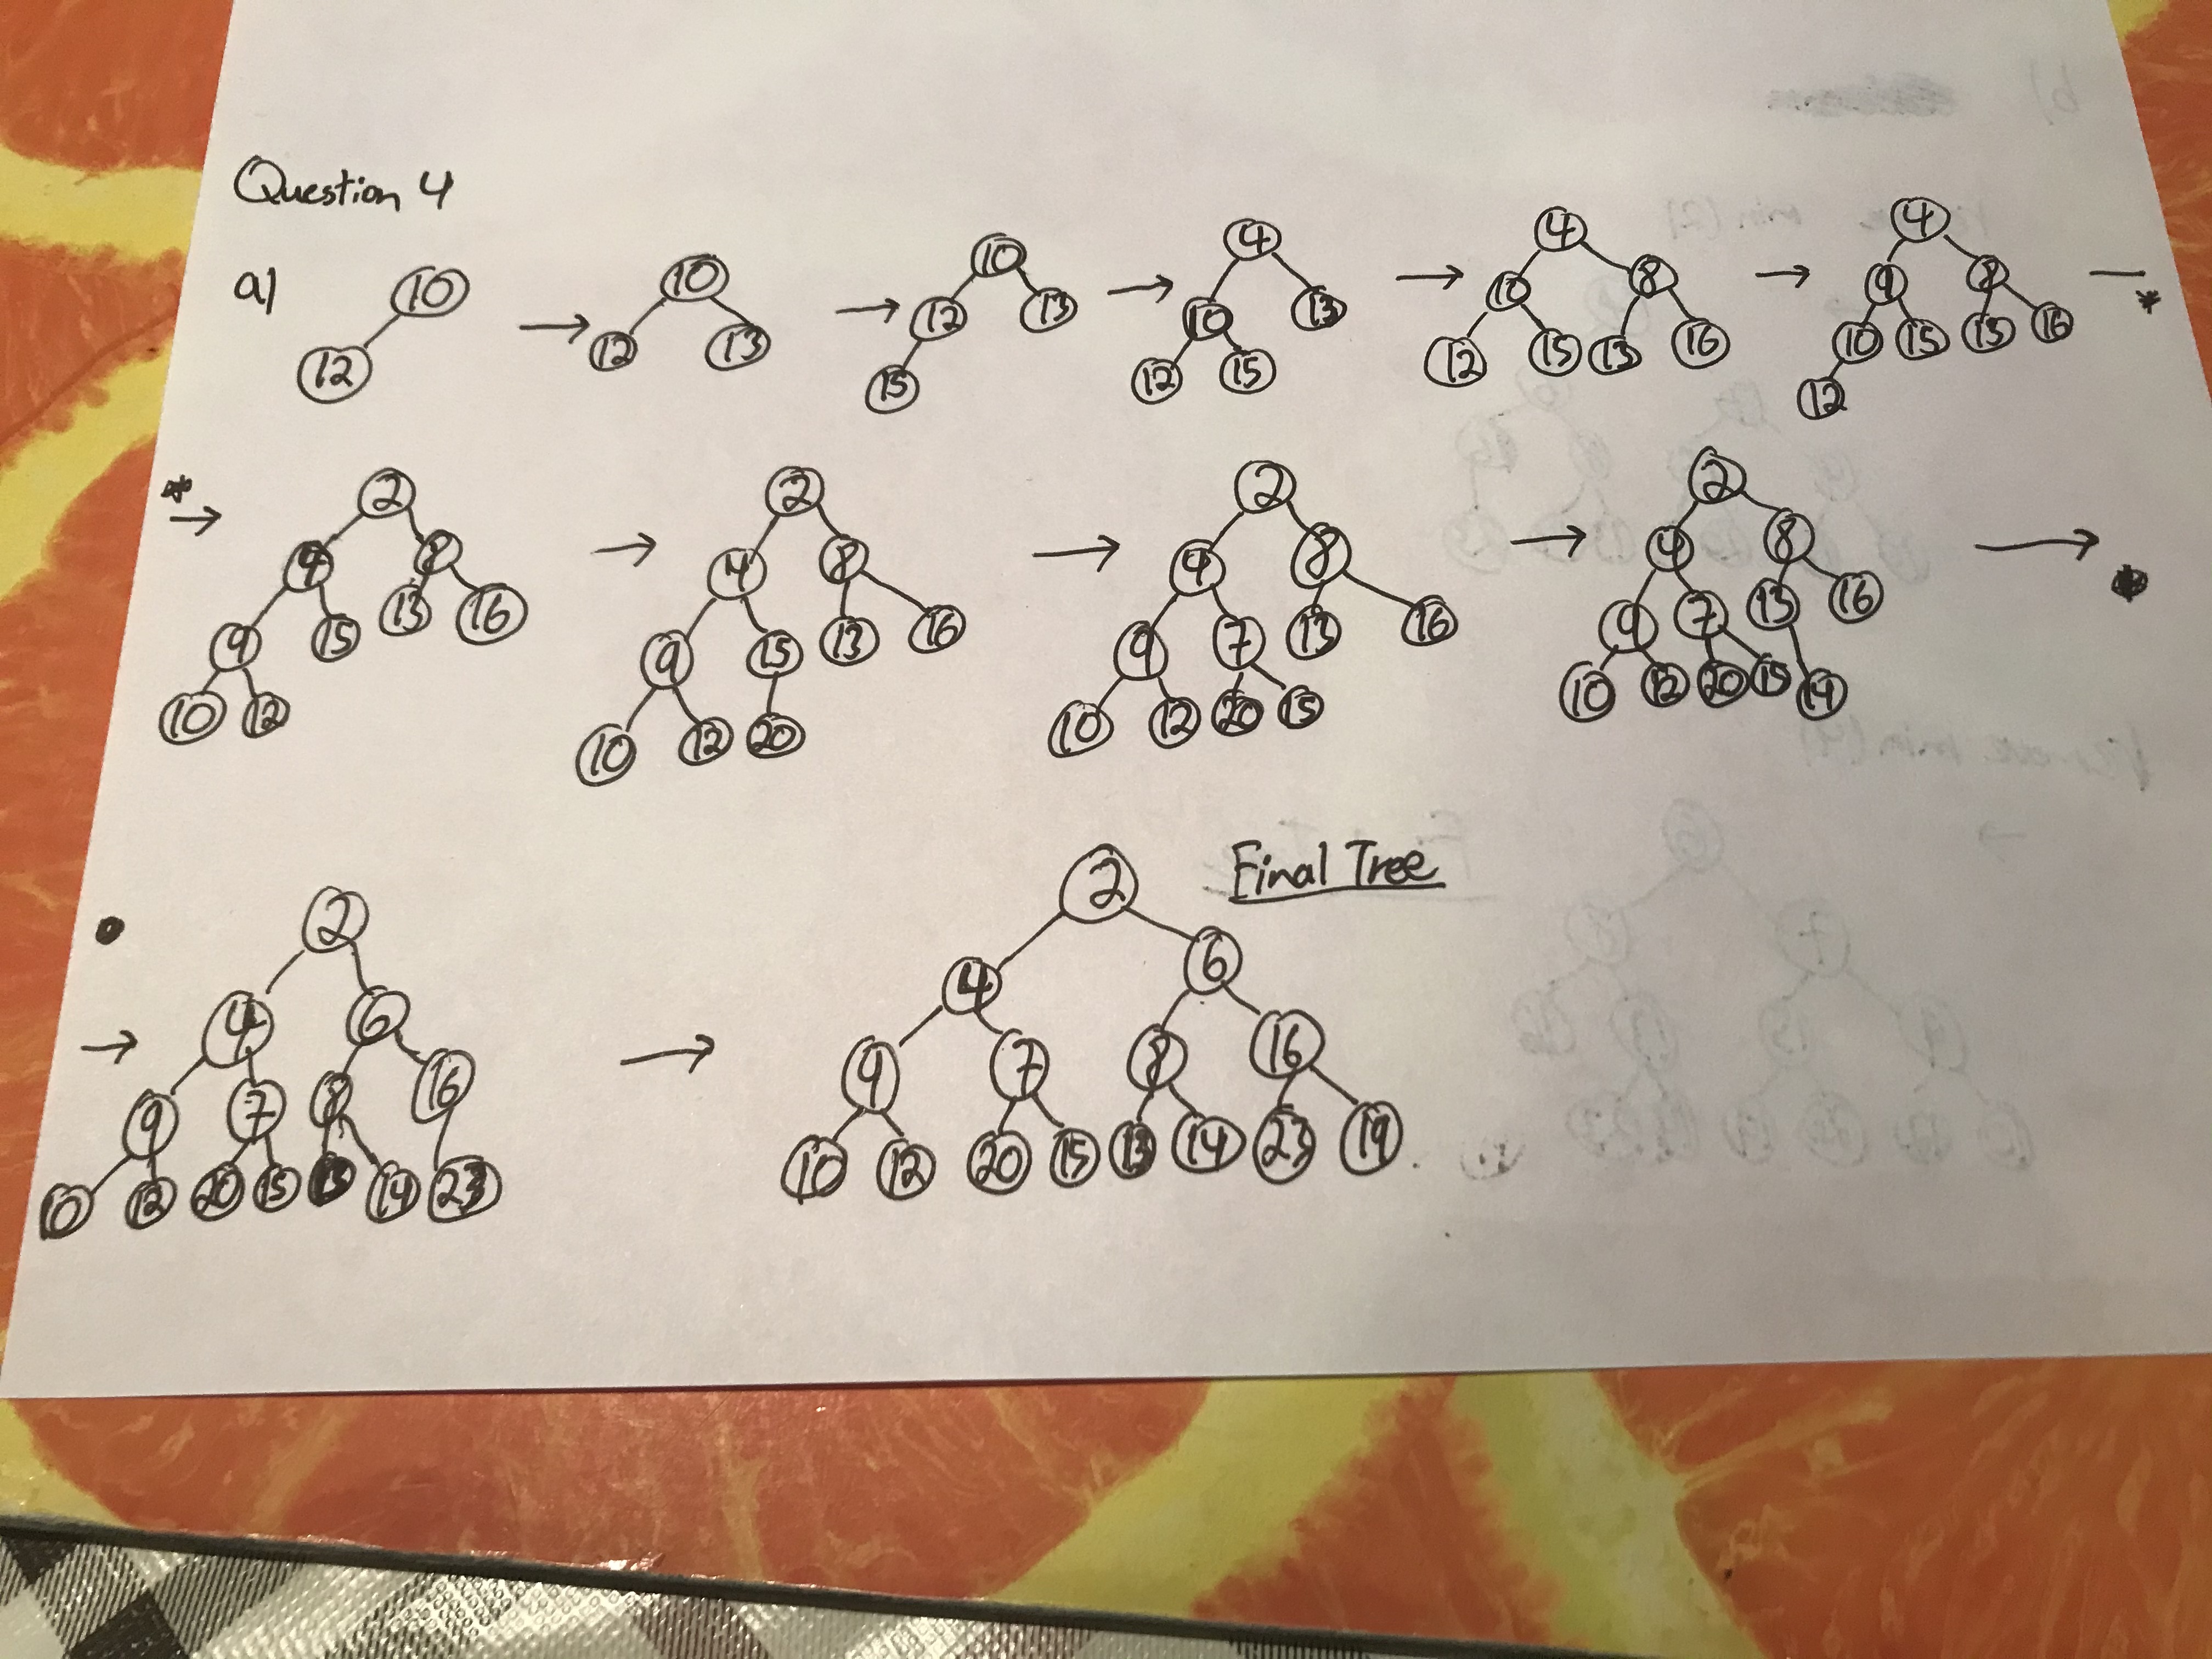 Question 4
a)
10
12
→
10
12 13
→
10
12 13
15
→
4
10 13
12 15
→
4
10 8
12 15 13 16
→
4
9 8
10 15 13 16
12
— *
* →
2
4 8
9 15 13 16
10 12
→
2
4 8
9 15 13 16
10 12 20
→
2
4 8
9 7 13 16
10 12 20 15
→
2
4 8
9 7 13 16
10 12 20 15 14
→ •
• →
2
4 6
9 7 8 16
10 12 20 15 13 14 23
→
Final Tree
2
4 6
9 7 8 16
10 12 20 15 13 14 23 19